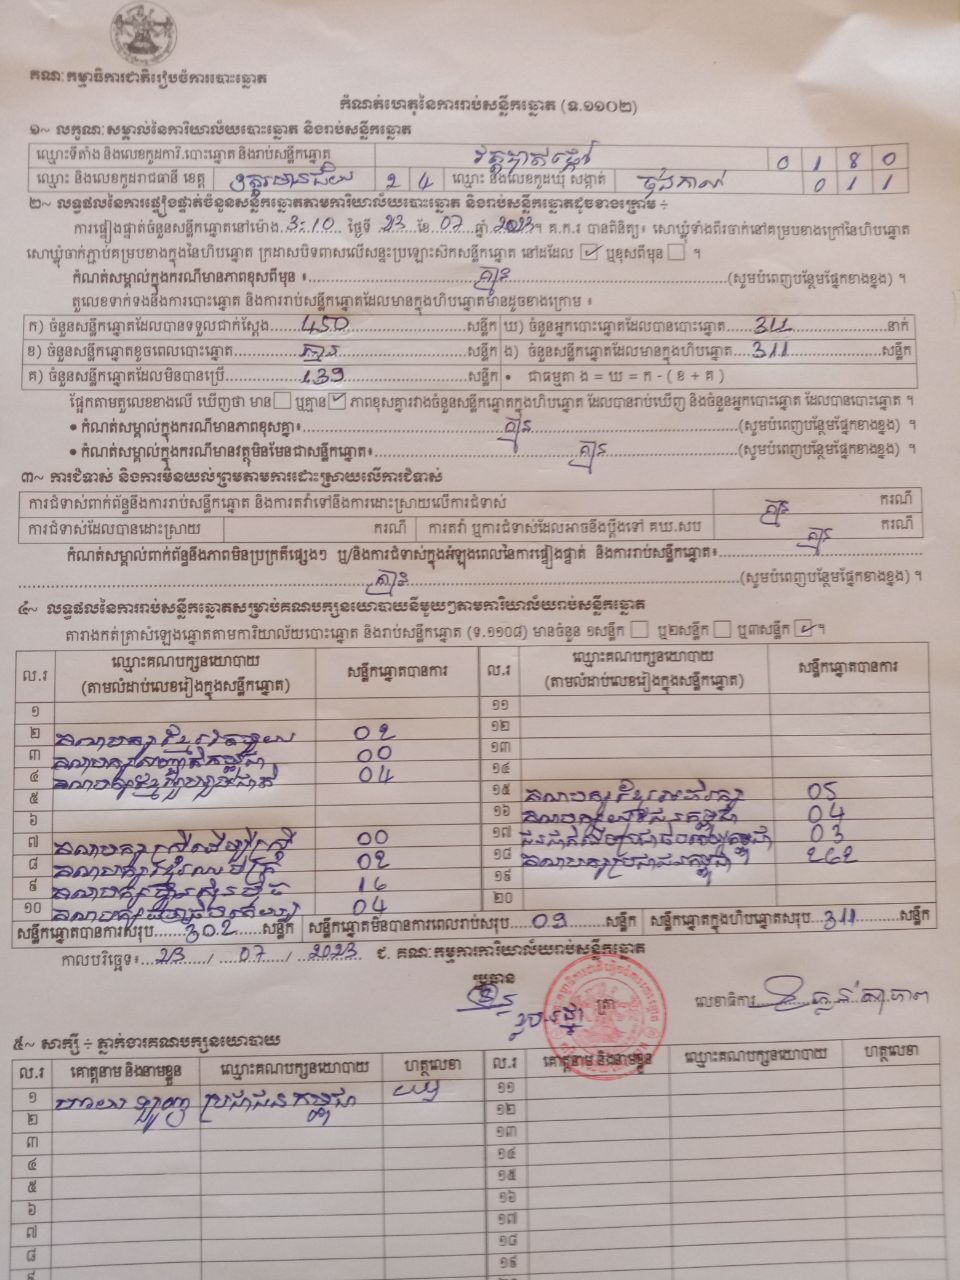 គណៈកម្មាធិការជាតិរៀបចំការបោះឆ្នោត
កំណត់ហេតុនៃការរាប់សន្លឹកឆ្នោត (ទ.១១០២)
១~ លក្ខណៈសម្គាល់នៃការិយាល័យបោះឆ្នោត និងរាប់សន្លឹកឆ្នោត
ឈ្មោះទីតាំង និងលេខកូដការិ.បោះឆ្នោត និងរាប់សន្លឹកឆ្នោត 0 1 8 0
ឈ្មោះ និងលេខកូដរាជធានី ខេត្ត ឧត្តរមានជ័យ 2 4 ឈ្មោះ និងលេខកូដឃុំ សង្កាត់ 0 1 1
២~ លទ្ធផលនៃការផ្ទៀងផ្ទាត់ចំនួនសន្លឹកឆ្នោតតាមការិយាល័យបោះឆ្នោត និងរាប់សន្លឹកឆ្នោតដូចខាងក្រោម ÷
ការផ្ទៀងផ្ទាត់ចំនួនសន្លឹកឆ្នោតនៅម៉ោង 3:10 ថ្ងៃទី 23 ខែ 07 ឆ្នាំ 2023។ គ.ក.រ បានពិនិត្យ៖ សោឃ្លុំទាំងពីរចាក់នៅគម្របខាងក្រៅនៃហិបឆ្នោត
សោឃ្លុំចាក់ភ្ជាប់គម្របខាងក្នុងនៃហិបឆ្នោត ក្រដាសបិទពាសលើសន្ទះប្រឡោះស៊កសន្លឹកឆ្នោត នៅដដែល ✓ ឬខុសពីមុន ។
កំណត់សម្គាល់ក្នុងករណីមានភាពខុសពីមុន ៖ គ្មាន (សូមបំពេញបន្ថែមផ្នែកខាងខ្នង) ។
តួលេខទាក់ទងនឹងការបោះឆ្នោត និងការរាប់សន្លឹកឆ្នោតដែលមានក្នុងហិបឆ្នោតមានដូចខាងក្រោម ៖
ក) ចំនួនសន្លឹកឆ្នោតដែលបានទទួលជាក់ស្តែង 450 សន្លឹក ឃ) ចំនួនអ្នកបោះឆ្នោតដែលបានបោះឆ្នោត 311 នាក់
ខ) ចំនួនសន្លឹកឆ្នោតខូចពេលបោះឆ្នោត គ្មាន សន្លឹក ង) ចំនួនសន្លឹកឆ្នោតដែលមានក្នុងហិបឆ្នោត 311 សន្លឹក
គ) ចំនួនសន្លឹកឆ្នោតដែលមិនបានប្រើ 139 សន្លឹក • ជាធម្មតា ង = ឃ = ក - ( ខ + គ )
ផ្អែកតាមតួលេខខាងលើ ឃើញថា មាន ឬគ្មាន ✓ ភាពខុសគ្នារវាងចំនួនសន្លឹកឆ្នោតក្នុងហិបឆ្នោត ដែលបានរាប់ឃើញ និងចំនួនអ្នកបោះឆ្នោត ដែលបានបោះឆ្នោត ។
• កំណត់សម្គាល់ក្នុងករណីមានភាពខុសគ្នា៖ គ្មាន (សូមបំពេញបន្ថែមផ្នែកខាងខ្នង) ។
• កំណត់សម្គាល់ក្នុងករណីមានវត្ថុមិនមែនជាសន្លឹកឆ្នោត៖ គ្មាន (សូមបំពេញបន្ថែមផ្នែកខាងខ្នង) ។
៣~ ការជំទាស់ និងការមិនយល់ព្រមតាមការដោះស្រាយលើការជំទាស់
ការជំទាស់ពាក់ព័ន្ធនឹងការរាប់សន្លឹកឆ្នោត និងការតវ៉ាទៅនឹងការដោះស្រាយលើការជំទាស់ គ្មាន ករណី
ការជំទាស់ដែលបានដោះស្រាយ ករណី ការតវ៉ា ឬការជំទាស់ដែលអាចនឹងប្តឹងទៅ គឃ.សប គ្មាន ករណី
កំណត់សម្គាល់ពាក់ព័ន្ធនឹងភាពមិនប្រក្រតីផ្សេងៗ ឬ/និងការជំទាស់ក្នុងអំឡុងពេលនៃការផ្ទៀងផ្ទាត់ និងការរាប់សន្លឹកឆ្នោត៖
គ្មាន (សូមបំពេញបន្ថែមផ្នែកខាងខ្នង) ។
៤~ លទ្ធផលនៃការរាប់សន្លឹកឆ្នោតសម្រាប់គណបក្សនយោបាយនីមួយៗតាមការិយាល័យរាប់សន្លឹកឆ្នោត
តារាងកត់ត្រាសំឡេងឆ្នោតតាមការិយាល័យបោះឆ្នោត និងរាប់សន្លឹកឆ្នោត (ទ.១១០៨) មានចំនួន ១សន្លឹក ឬ២សន្លឹក ឬ៣សន្លឹក ✓។
ល.រ ឈ្មោះគណបក្សនយោបាយ (តាមលំដាប់លេខរៀងក្នុងសន្លឹកឆ្នោត) សន្លឹកឆ្នោតបានការ ល.រ ឈ្មោះគណបក្សនយោបាយ (តាមលំដាប់លេខរៀងក្នុងសន្លឹកឆ្នោត) សន្លឹកឆ្នោតបានការ
១ ១១
២ 02 ១២
៣ 00 ១៣
៤ 04 ១៤
៥ ១៥ 05
៦ ១៦ 04
៧ 00 ១៧ 03
៨ 02 ១៨ គណបក្សប្រជាជនកម្ពុជា 262
៩ 16 ១៩
១០ 04 ២០
សន្លឹកឆ្នោតបានការសរុប 302 សន្លឹក សន្លឹកឆ្នោតមិនបានការពេលរាប់សរុប 09 សន្លឹក សន្លឹកឆ្នោតក្នុងហិបឆ្នោតសរុប 311 សន្លឹក
កាលបរិច្ឆេទ៖ 23 / 07 / 2023 ជ. គណៈកម្មការការិយាល័យរាប់សន្លឹកឆ្នោត
ប្រធាន ត្រា លេខាធិការ
៥~ សាក្សី ÷ ភ្នាក់ងារគណបក្សនយោបាយ
ល.រ គោត្តនាម និងនាមខ្លួន ឈ្មោះគណបក្សនយោបាយ ហត្ថលេខា ល.រ គោត្តនាម និងនាមខ្លួន ឈ្មោះគណបក្សនយោបាយ ហត្ថលេខា
១ ប្រជាជនកម្ពុជា ១១
២ ១២
៣ ១៣
៤ ១៤
៥ ១៥
៦ ១៦
៧ ១៧
៨ ១៨
៩ ១៩